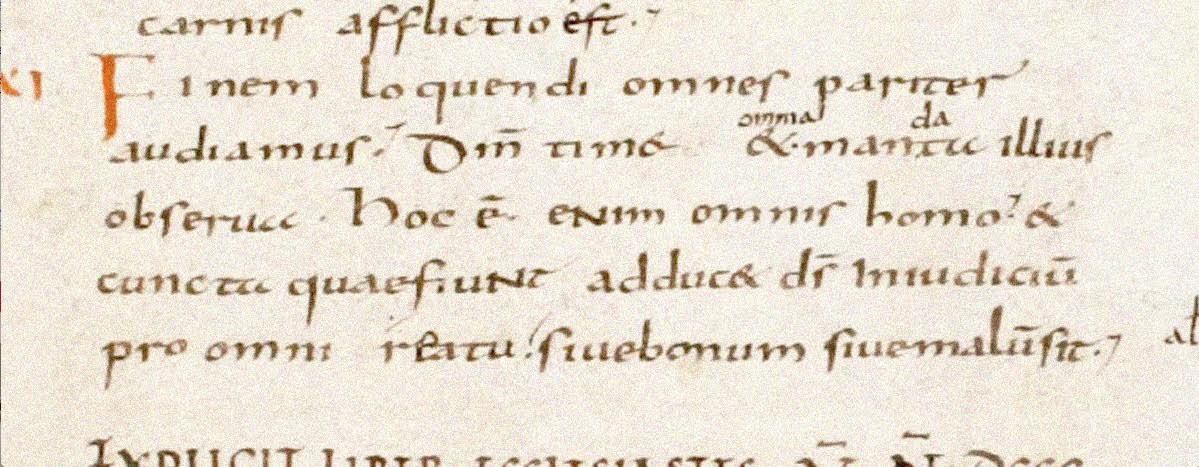 carnis afflictio est.
XI Finem loquendi omnes pariter
audiamus. Dm̄ time& &omnia man da ta illius
obserua. Hoc ē. enim omnis homo. &
cuncta quaefiunt adduc& ds̄ Iniudiciū
pro omni reatu. siuebonum siuemalūsit.